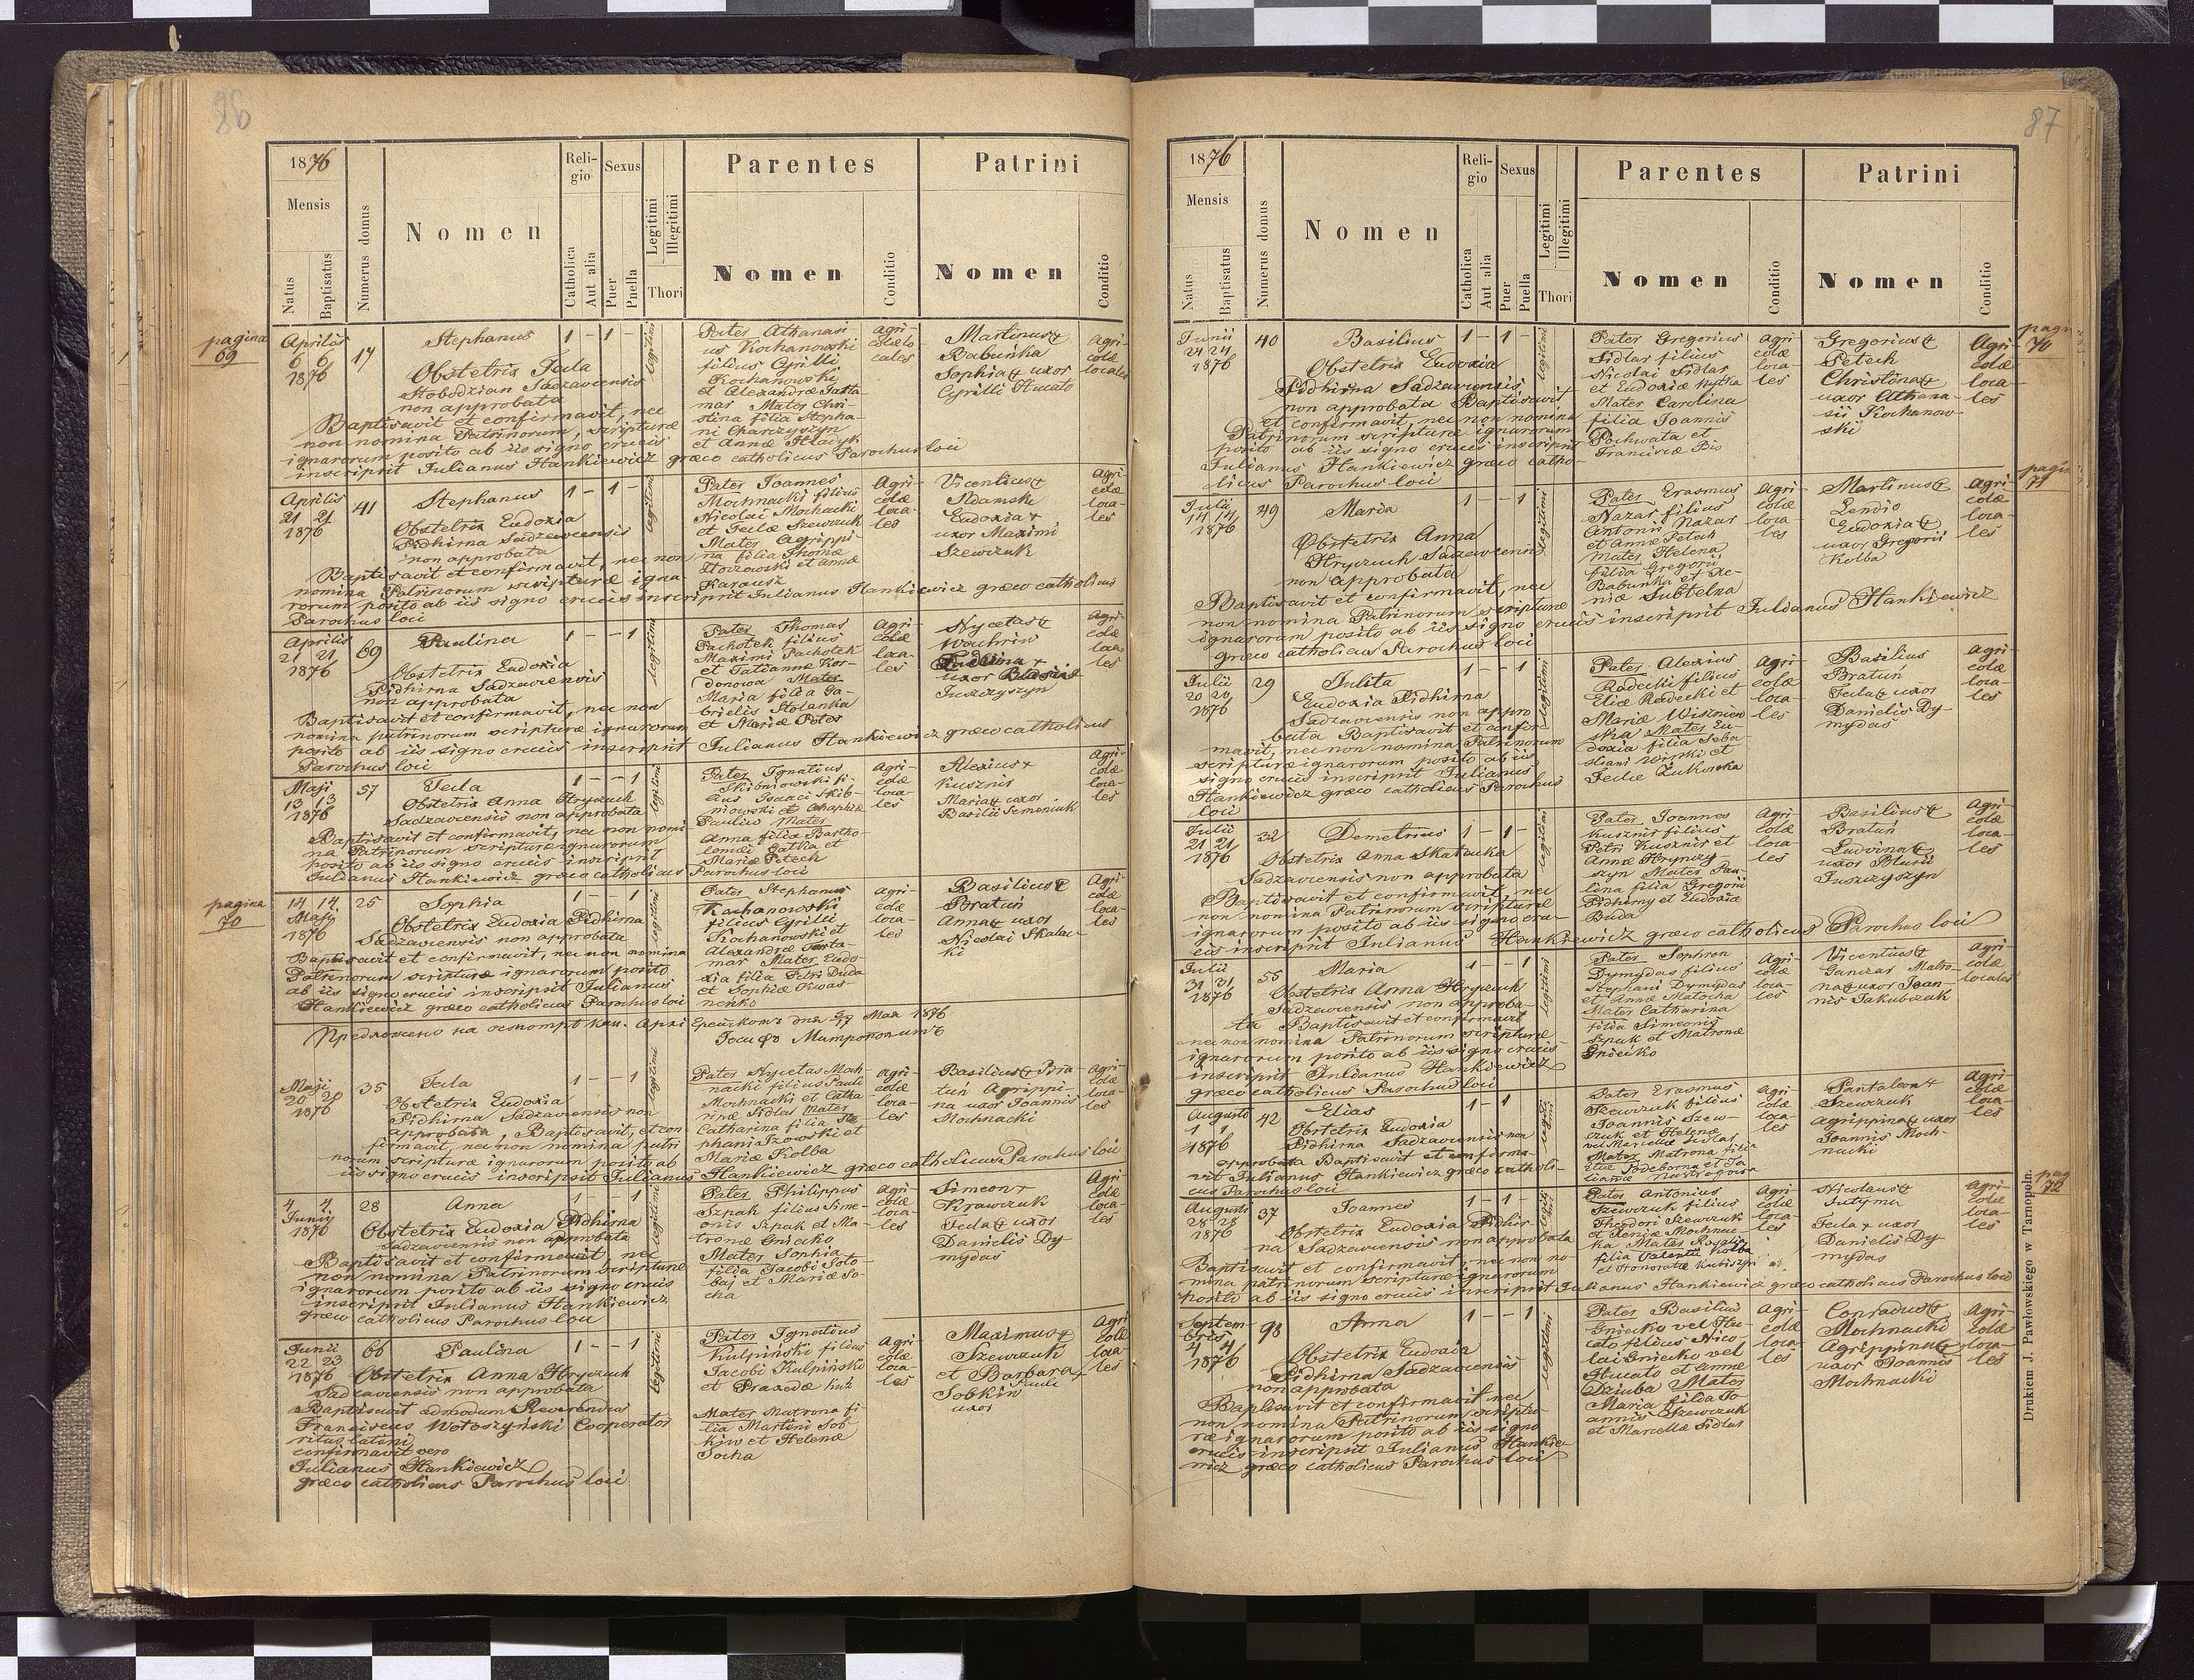 86
1876
Mensis
Natus
Baptisatus
Numerus domus
Nomen
Religio
Catholica
Aut alia
Sexus
Puer
Puella
Legitimi
Illegitimi
Thori
Parentes
Nomen
Conditio
Patrini
Nomen
Conditio
pagina
69
Aprilis
6 6
1876
14
Stephanus
1 - 1 -
legitimi
Obstetrix Tecla
Stobodzian Sadzaviensis
non approbata
Baptisavit et confirmavit, nec
non nomina Patrinorum, scripturæ
ignarorum posito ab iis signo crucis
inscripsit Julianus Hankiewicz græco catholicus Parochus loci
Pater Athanasi-
us Kochanowski
filius Cyrilli
Kochanowski
et Alexandræ Tatta-
mar Mater Chri-
stina filia Stepha-
ni Charczyszyn
et Annæ Hladysh
agri-
colælo-
cales
Martinus +
Babunka
Sophia + uxor
Cyrilli Hucato
Agri-
colæ
locales
Aprilis
21 21
1876
41
Stephanus
1 - 1 -
legitimi
Obstetrix Eudoxia
Pidhirna Sadzaviensis
non approbata
Baptisavit et confirmavit, nec non
nomina Patrinorum scripturæ igna-
rorum posito ab iis signo crucis inscripsit Julianus Hankiewicz græco catholicus
Parochus loci
Pater Joannes
Mochnacki filius
Nicolai Mochnacki
et Teclæ Szewczuk
Mater Agrippi-
na filia Thomæ
et Annæ
Karausz
Agri-
colæ
loca-
les
Vicentius +
Adamsk
Eudoxia +
uxor Maximi
Szewczuk
Agri-
colæ
loca-
les
Aprilis
21 21
1876
69
Paulina
1 - - 1
legitimi
Obstetrix Eudoxia
Pidhirna Sadzaviensis
non approbata
Baptisavit et confirmavit, nec non
nomina patrinorum scripturæ ignarorum
posito ab iis signo crucis inscripsit Julianus Hankiewicz græco catholicus
Parochus loci
Pater Thomas
Pachotek filius
Maximi Pachotek
et Tatiannæ Kor-
donowa Mater
Maria filia Ga-
brielis Stolanka
et Mariæ Potes
Agri
colæ
loca-
les
Nycetas +
Wouhrin
+
uxor Blasii
Juszczyszyn
Agri-
colæ
loca-
les
Maji
13 13
1876
57
Tecla
1 - - 1
legitimi
Obstetrix Anna Hryczuk
Sadzaviensis non approbata
Baptisavit et confirmavit, nec non nomi-
na Patrinorum scripturæ ignarorum
posito ab iis signo crucis inscripsit
Julianus Hankiewicz græco catholicus Parochus loci
Pater Ignatius
Skibniowski fi-
lius Isaaci Skib-
niowski et Ahaphiæ
Pauliw Mater
Anna filia Bartho-
lomæi Gatka et
Mariæ Petech
Agri-
colæ
loca-
les
Alexius +
Kusznir
Maria + uxor
Basilii Semeniuk
Agri-
colæ
loca-
les
pagina
70
14 14
Maji
1876
25
Sophia
1 - 1
legitimi
Obstetrix Eudoxia Pidhirna
Sadzaviensis non approbata
Baptisavit et confirmavit, nec non nomina
Patrinorum scripturæ ignarorum posito
ab iis signo crucis inscripsit Julianus
Hankiewicz græco catholicus Parochus loci
Pater Stephanus
Kochanowski
filius Cyrilli
Kochanowski et
Alexandræ Tarta-
mar Mater Eudo-
xia filia Petri Duda
et Sophiæ Kwas-
nenko
Agri-
colæ
loca-
les
Basilius +
Bratuń
Anna + uxor
Nicolai Skalau-
ki
Agri-
colæ
loca-
les
Мая 1876
Maji
20 20
1876
35
Tecla
1 - - 1
legitimi
Obstetrix Eudoxia
Pidhirna Sadzaviensis non
approbata, Baptisavit, et con
firmavit, nec non nomina patri
norum scripturæ ignarorum posito ab
iis signo crucis inscripsit Julianus Hankiewicz græco catholicus Parochus loci
Pater Nycetas Moch-
nacki filius Pauli
Mochnacki et Catha
rinæ Sidlar Mater
Catharina filia Ste
phani Izowski et
Mariæ Kolba
Agri-
colæ
loca-
les
Basilius + Bra
tuń Agrippi-
na uxor Joannis
Mochnacki
Agri-
colæ
loca-
les
4 4
Junij
1876
28
Anna
1 - 1
legitimi
Obstetrix Eudoxia Pidhirna
Sadzaviensis non approbata
Baptisavit et confirmavit, nec
non nomina Patrinorum scripturæ
ignarorum posito ab iis signo crucis
inscripsit Julianus Hankiewicz
græco catholicus Parochus loci
Pater Philippus
Szpak filius Sime-
onis Szpak et Ma-
tronæ Gniecko
Mater Sophia
filia Jacobi Soto-
baj et Mariæ So-
cha
Agri-
colæ
loca-
les
Simeon +
Krawczuk
Tecla + uxor
Danielis Dy-
mydas
Agri-
colæ
loca-
les
Junii
22 23
1876
66
Paulina
1 - - 1
legitimi
Obstetrix Anna Hryczuk
Sadzaviensis non approbata
Baptisavit admodum Reverendus
Franciscus Wotoszyński Cooperator
ritus latini
confirmavit vero
Julianus Hankiewicz
græco catholicus Parochus loci
Pater Ignatius
Kulpiński filius
Jacobi Kulpiński
et Praxedæ Kuź
Mater Matrona fi-
lia Martini Sob-
kiw et Helenæ
Socha
Agri
colæ
loca-
les
Maximus +
Szewczuk
et Barbara +
Pauli
Sobkiw
uxor
Agri
colæ
loca-
les
87
1876
Mensis
Natus
Baptisatus
Numerus domus
Nomen
Religio
Catholica
Aut alia
Sexus
Puer
Puella
Legitimi
Illegitimi
Thori
Parentes
Nomen
Conditio
Patrini
Nomen
Conditio
pagi
70
Junii
24 24
1876
40
Basilius
1 - 1 -
legitimi
Obstetrix Eudoxia
Pidhirna Sadzaviensis
non approbata Baptisavit
et confirmavit, nec non nomina
Patrinorum scripturæ ignarorum
posito ab iis signo crucis inscripsit
Julianus Hankiewicz græco catho-
licus Parochus loci
Pater Gregorius
Sidlar filius
Nicolai Sidlar
et Eudoxiæ Nytka
Mater Carolina
filia Joannis
Pochwata et
Franciscæ Bis
Agri
colæ
loca-
les
Gregorius +
Petech
Christina +
uxor Athana-
sii Kochanow-
ski
Agri-
colæ
loca-
les
pagi
71
Julii
14 14
1876
49
Maria
1 - - 1
legitimi
Obstetrix Anna
Hryczuk Sadzaviensis
non approbata
Baptisavit et confirmavit, nec
non nomina Patrinorum scripturæ
ignarorum posito ab iis signo crucis inscripsit Julianus Hankiewicz
græco catholicus Parochus loci
Pater Erasmus
Nazar filius
Antonii Nazar
et Annæ Petech
Mater Helena
filia Gregorii
Babunka et Xe-
niæ Subtelna
Agri-
colæ
loca-
les
Martinus +
Lendio
Eudoxia +
uxor Gregorii
Kolba
Agri-
colæ
loca-
les
Julii
20 20
1876
29
Julita
1 - - 1
legitimi
Eudoxia Pidhirna
Sadzaviensis non appro
bata Baptisavit et confir-
mavit, nec non nomina Patrinorum
scripturæ ignarorum posito ab iis
signo crucis inscripsit Julianus
Hankiewicz græco catholicus Parochus
loci
Pater Alexius
Radecki filius
Eliæ Radecki et
Mariæ Wisznien
ska Mater Eu-
doxia filia Seba-
stiani Wirski et
Teclæ Żukowska
Agri-
colæ
loca-
les
Basilius
Bratuń
Tecla + uxor
Danielis Dy-
mydas
Agri-
colæ
loca-
les
Julii
21 21
1876
32
Demetrius
1 - 1 -
legitimi
Obstetrix Anna Skatauka
Sadzaviensis non approbata
Baptisavit et confirmavit nec
non nomina Patrinorum scripturæ
ignarorum posito ab iis signo cru-
cis inscripsit Julianus Hankiewicz græco catholicus Parochus loci
Pater Joannes
Kusznir filius
Petri Kusznir et
Annæ Hrynczy-
szyn Mater Pau-
lina filia Gregorii
Pidhirny et Eudoxiæ
Buda
Agri-
colæ
loca-
les
Basilius +
Bratuń
Ludvina +
uxor Blasii
Juszczyszyn
Agri-
colæ
loca-
les
Julii
31 31
1876
55
Maria
1 - - 1
legitimi
Obstetrix Anna Hryczuk
Sadzaviensis non approba-
ta Baptisavit et confirmavit
nec non nomina Patrinorum scripturæ
ignarorum posito ab iis signo crucis
inscripsit Julianus Hankiewicz
græco catholicus Parochus loci
Pater Sophron
Dymydas filius
Stephani Dymydas
et Annæ Matocha
Mater Catharina
filia Simeonis
Szpak et Matronæ
Gniecko
Agri-
colæ
loca-
les
Vicentius +
Ganczar Matro-
na + uxor Joan-
nis Jakubczak
Agri-
colæ
locales
Augusto
1 1
1876
42
Elias
1 - 1
legitimi
Obstetrix Eudoxia
Pidhirna Sadzaviensis non
approbata Baptisavit et confirma-
vit Julianus Hankiewicz græco catholi-
cus Parochus loci
Pater Erasmus
Szewczuk filius
Joannis Szew-
czuk et Helenæ
vel Marcellæ Sidlar
Mater Matrona filia
Eliæ Podeborna et Ta
tiannæ
Agri
colæ
loca-
les
Pantaleon +
Szewczuk
Agrippina + uxor
Joannis Moch-
nacki
Agri-
colæ
loca-
les
pag
72
Augusti
28 28
1876
37
Joannes
1 - 1 -
legitimi
Obstetrix Eudoxia Pidhir-
na Sadzaviensis non approbata
Baptisavit et confirmavit, nec non no-
mina patrinorum scripturæ ignarorum
posito ab iis signo crucis inscripsit Julianus Hankiewicz græco catholicus Parochus loci
Pater Antonius
Szewczuk filius
Theodori Szewczuk
et Xeniæ Mochnac-
ka Mater Rosalia
filia Valentii Kolba
et Honoratæ Kubiszyn
Agri
colæ
loca-
les
Nicolaus +
Jutyma
Tecla + uxor
Danielis Dy-
mydas
Agri-
colæ
loca-
les
Septem-
bris
4 4
1876
98
Anna
1 - - 1
legitimi
Obstetrix Eudoxia
Pidhirna Sadzaviensis
non approbata
Baptisavit et confirmavit nec
non nomina Patrinorum scriptu-
ræ ignarorum posito ab iis signo
crucis inscripsit Julianus Hankie-
wicz græco catholicus Parochus loci
Pater Basilius
Gniecko vel Hu-
cato filius Nico-
lai Gniecko vel
Hucato et Annæ
Dziuba Mater
Maria filia Jo-
annis Szewczuk
et Marcellæ Sidlar
Agri-
colæ
loca-
les
Conradus +
Mochnacki
Agrippina +
uxor Joannis
Mochnacki
Agri-
colæ
loca-
les
Drukiem J. Pawłowskiego w Tarnopolu.